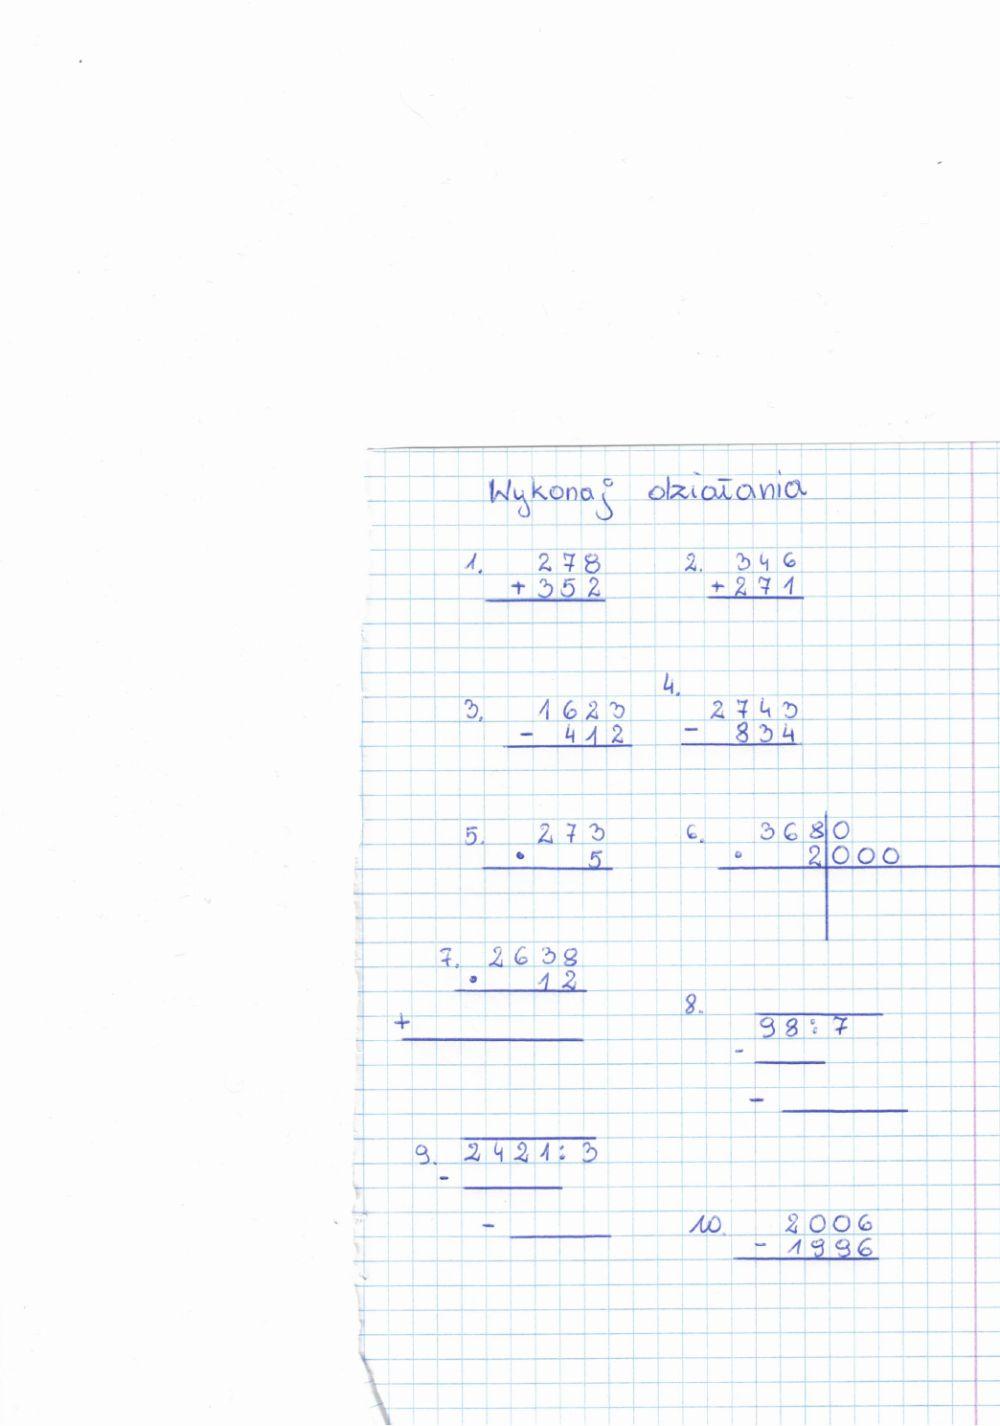 Wykonaj działania
1. 278
+352
2. 346
+271
3. 1623
- 412
4.
2743
- 834
5. 273
• 5
6. 3680
• 2000
7. 2638
• 12
+
8.
98:7
-
-
9. 2421:3
-
-
10. 2006
- 1996